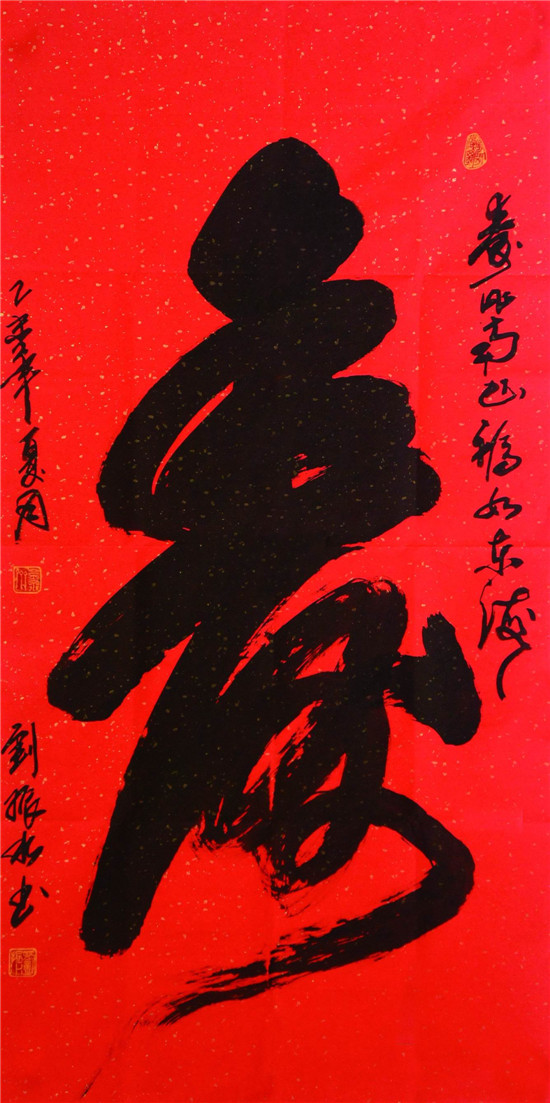 寿比南山福如东海
寿
乙年夏月
劉振书